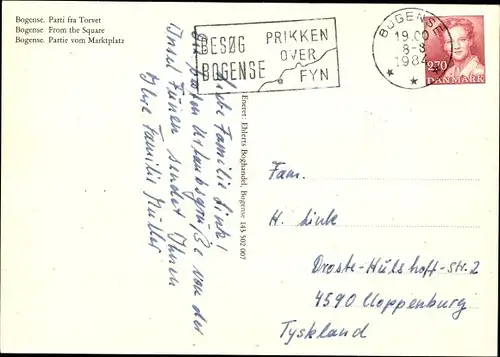 Bogense. Parti fra Torvet
Bogense. From the Square
Bogense. Partie vom Marktplatz
BESØG
BOGENSE
PRIKKEN
OVER
FYN
BOGENSE
19.00
8-8
1984
2.70
DANMARK
Liebe Familie Link!
Die besten Urlaubsgrüße von der
Insel Fünen sendet Ihnen
Ihre Familie Müller
Eneret: Ehlerts Boghandel, Bogense 145 502 007
Fam.
H. Link
Droste-Hülshoff-Str. 2
4590 Cloppenburg
Tyskland